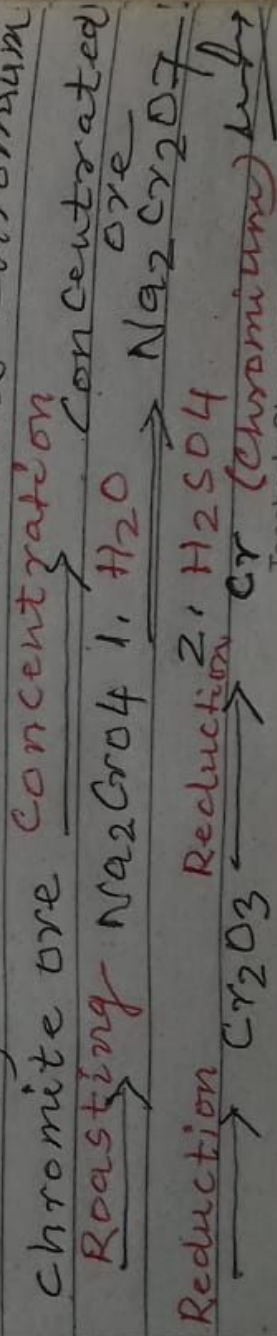 Chromite ore Concentration Concentrated ore
Roasting Na2CrO4 1. H2O Na2Cr2O7
2. H2SO4
Reduction Cr2O3 Reduction Cr (Chromium)